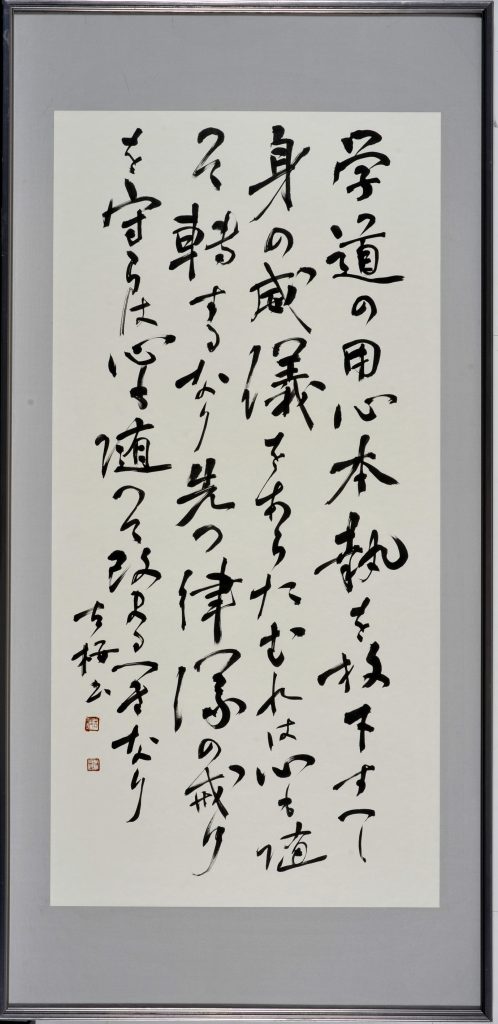 学道の用心本執を放下すへし
身の威儀をあらたむれは心も随
つて轉するなり先つ律儀の戒行
を守らは心も随つて改まるへきなり